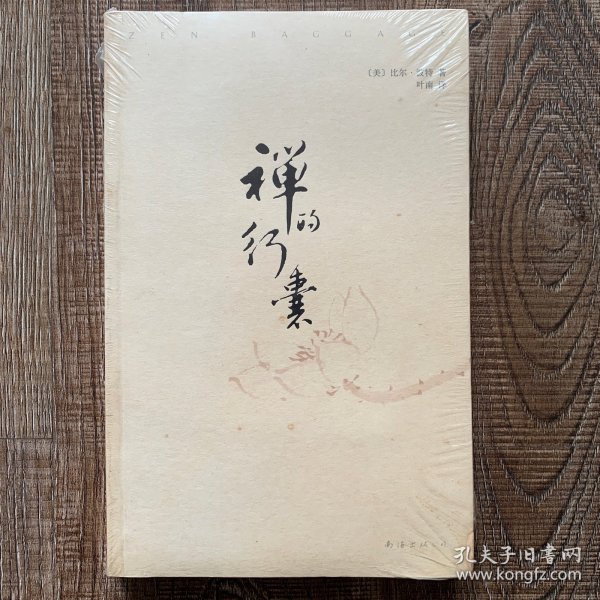 ZEN BAGGAGE
〔美〕比尔·波特 著
叶南 译
禅的行囊
南海出版公司
孔夫子旧书网
www.kongfz.com